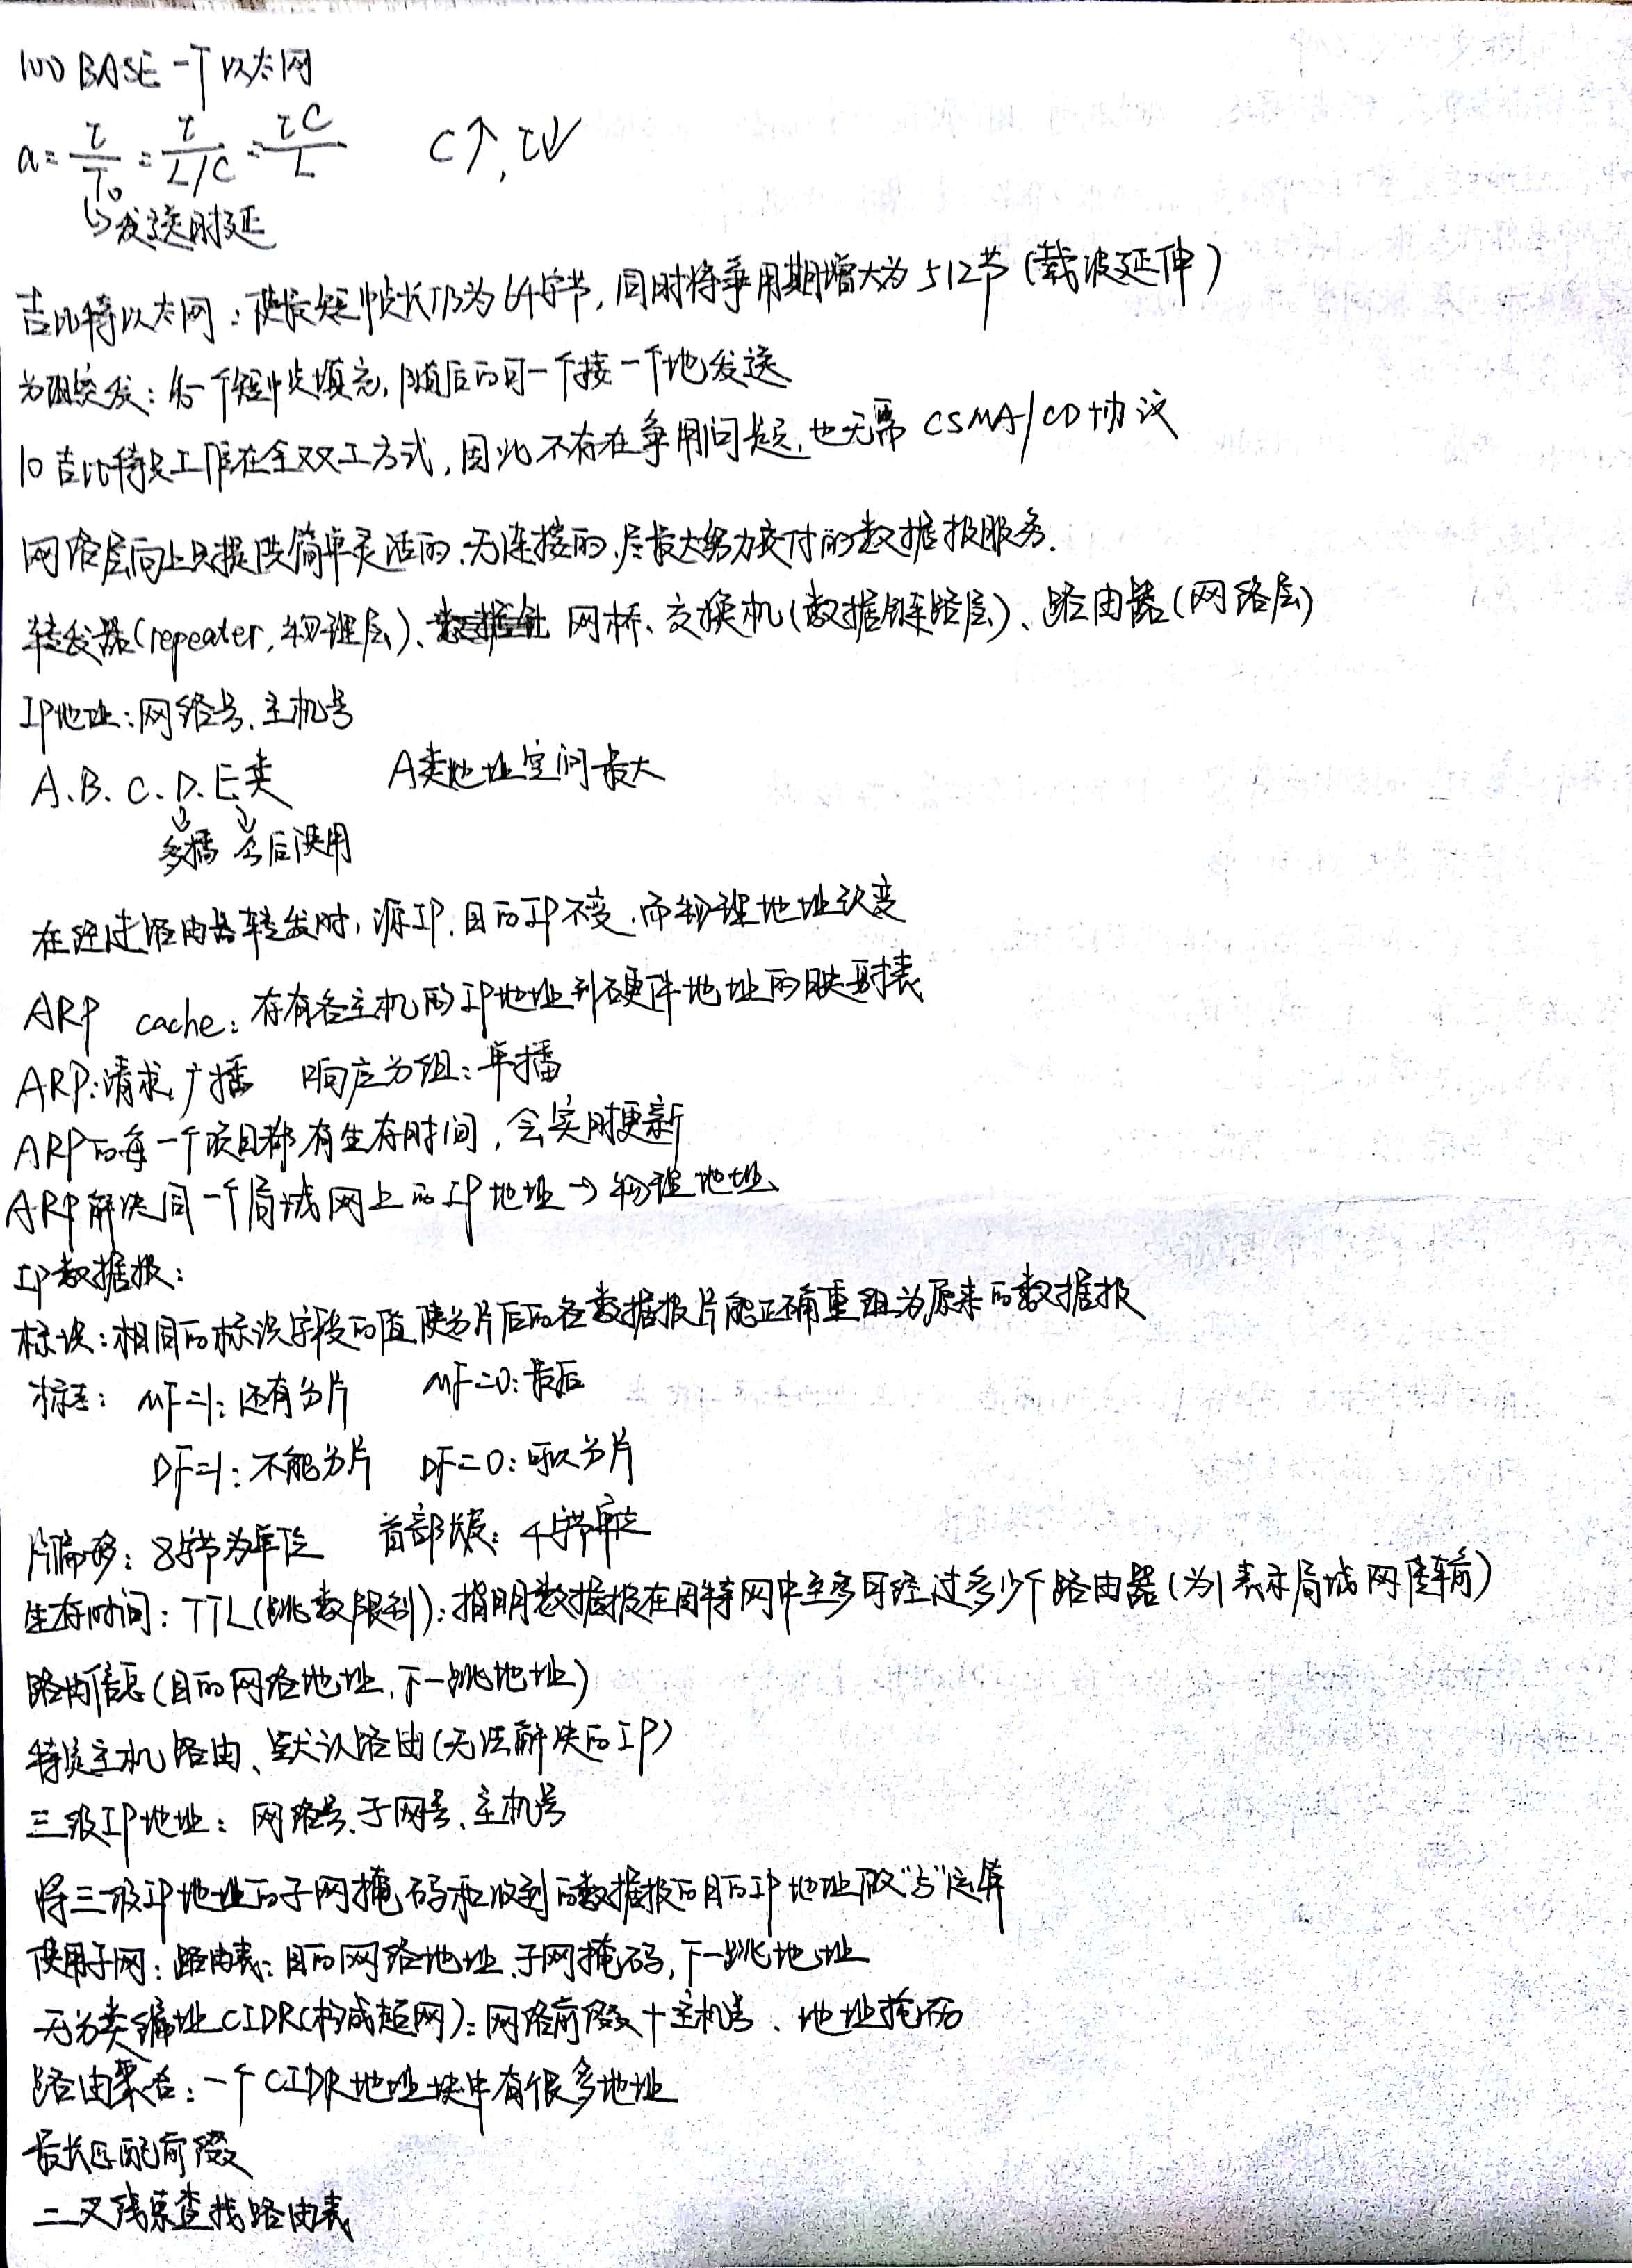 100 BASE-T 以太网
a = τ/T₀ = τ/(L/C) = τC/L    C↑, τ↓
↳发送时延
吉比特以太网：使最短帧长仍为64字节, 同时将争用期增大为512节 (载波延伸)
分组突发：第一个短帧填充, 随后的可一个接一个地发送
10吉比特只工作在全双工方式, 因此不存在争用问题, 也无需 CSMA/CD协议
网络层向上只提供简单灵活的、无连接的、尽最大努力交付的数据报服务.
转发器(repeater, 物理层)、网桥、交换机(数据链路层)、路由器(网络层)
IP地址：网络号、主机号
A. B. C. D. E类    A类地址空间最大
↓ ↓
多播 今后使用
在经过路由器转发时, 源IP、目的IP不变, 而物理地址改变
ARP cache：存有各主机的IP地址到硬件地址的映射表
ARP：请求广播    响应分组：单播
ARP的每一个项目都有生存时间, 会实时更新
ARP解决同一个局域网上的IP地址→物理地址
IP数据报：
标识：相同的标识字段的值使分片后的各数据报片能正确重组为原来的数据报
标志：MF=1：还有分片    MF=0：最后
DF=1：不能分片    DF=0：可以分片
片偏移：8字节为单位    首部长度：4字节单位
生存时间：TTL(跳数限制)：指明数据报在因特网中至多可经过多少个路由器 (为1表示局域网传输)
路由信息 (目的网络地址, 下一跳地址)
特定主机路由、默认路由(无法解决的IP)
三级IP地址：网络号、子网号、主机号
将三级IP地址的子网掩码和收到的数据报的目的IP地址做"与"运算
使用子网：路由表：目的网络地址、子网掩码, 下一跳地址
无分类编址CIDR(构成超网)：网络前缀+主机号、地址掩码
路由聚合：一个CIDR地址块中有很多地址
最长匹配前缀
二叉线索查找路由表